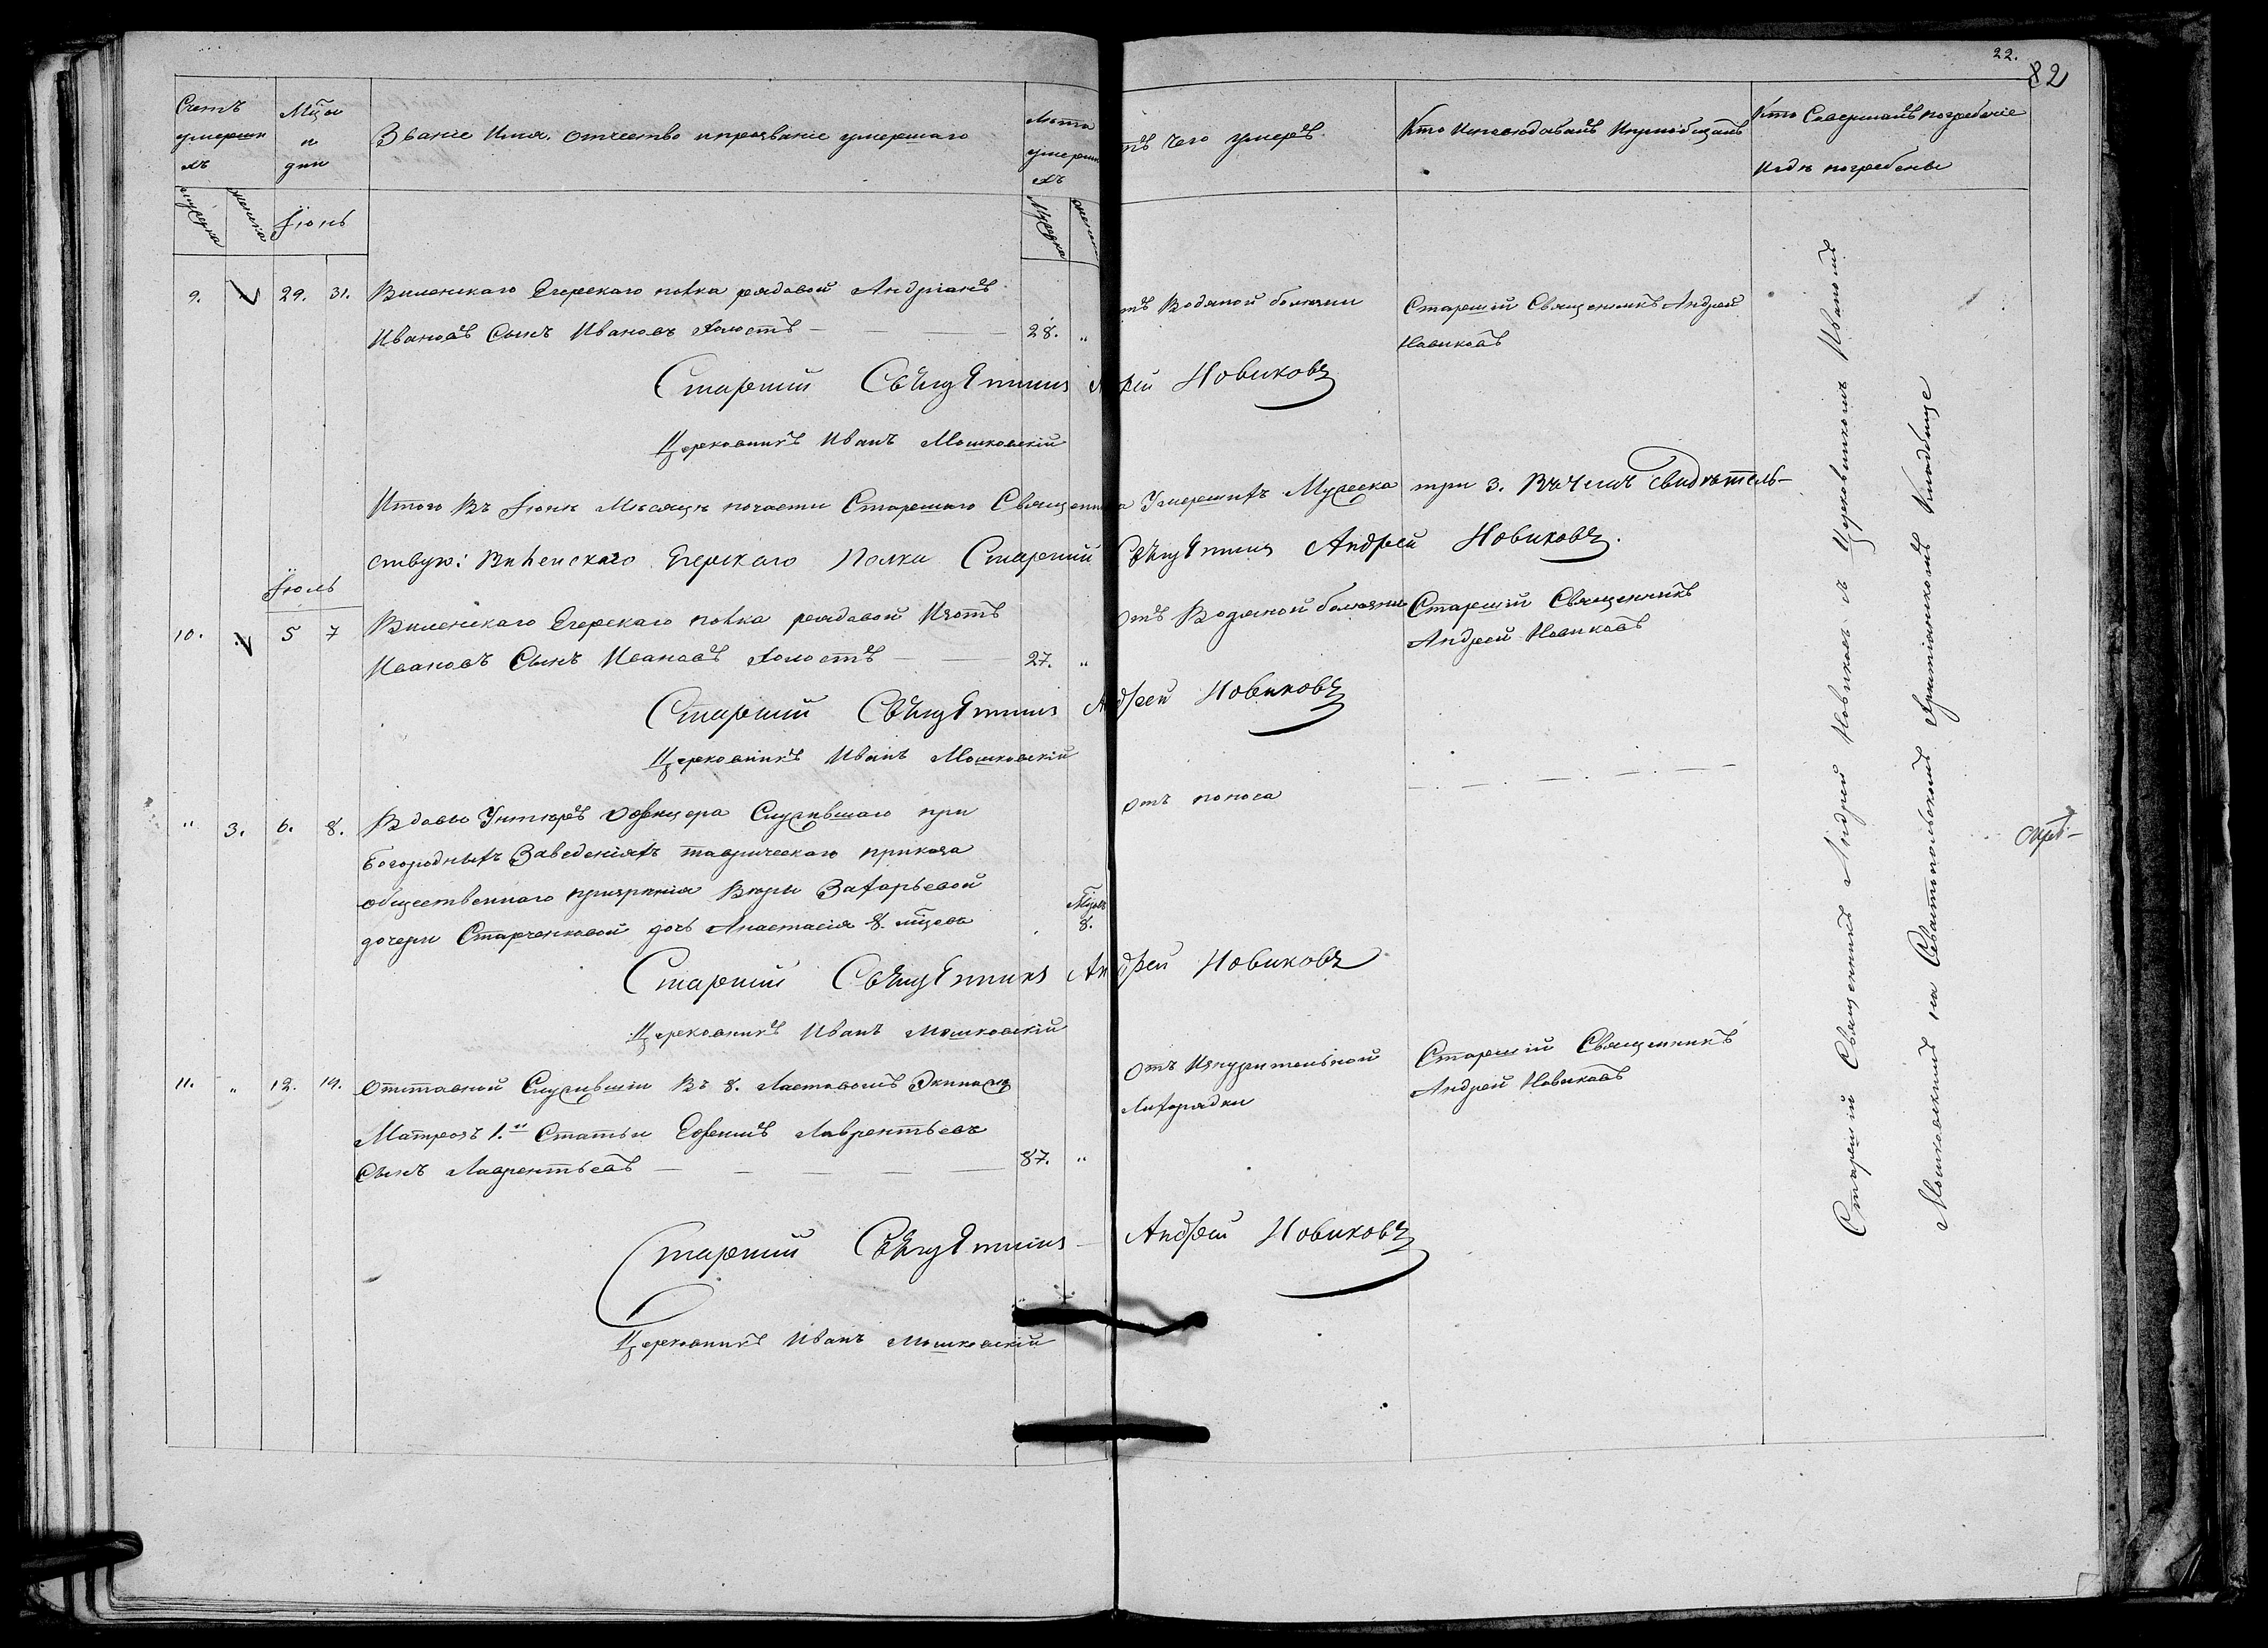 22.
82
Счетъ умершихъ
Мѣсяцъ и дни
Званіе Имя. Отчество и прозваніе умершаго
Лѣта умершихъ
отъ чего умеръ
Кто Исповѣдывалъ и пріобщалъ
Кто Совершалъ погребеніе
и гдѣ погребены
Мужеска
женска
Іюнь
Мужеска
женска
9.
29.
31.
Виленскаго Егерскаго полка рядовой Андріанъ
Ивановъ Сынъ Ивановъ холостъ
28.
"
отъ Водяной болезни
Старшій Священникъ Андрей
Новиковъ
Старшій Священникъ Андрей Новиковъ
Церковникъ Иванъ Мошковскій
Итого Въ Іюнѣ Мѣсяцѣ почасти Старшаго Священника Умершихъ Мужеска три 3. Въ чемъ Свидѣтель-
ствую: Виленскаго Егерскаго Полка Старшій Священникъ Андрей Новиковъ.
Іюль
10.
5
7
Виленскаго Егерскаго полка рядовой Изотъ
Ивановъ Сынъ Ивановъ холостъ
27.
"
отъ Водяной болезни
Старшій Священникъ
Андрей Новиковъ
Старшій Священникъ Андрей Новиковъ
Церковникъ Иванъ Мошковскій
"
3.
6.
8.
Вдовы Унтеръ Офицера Служившаго при
богоугодныхъ Заведеніяхъ таврическаго приказа
общественнаго призрѣнія Вѣры Захарьевой
дочери Старченковой дочь Анастасія 8. мѣсяцовъ
8.
отъ поноса
Старшій Священникъ Андрей Новиковъ
Церковникъ Иванъ Мошковскій
11.
"
12.
14.
отставной Служившій Въ 8. Ластовомъ Экипаже
Матрозъ 1.й Статьи Ефимъ Лаврентьевъ
Сынъ Лаврентьевъ
87.
"
отъ Изнурительной
Лихорадки
Старшій Священникъ
Андрей Новиковъ
Старшій Священникъ Андрей Новиковъ
Церковникъ Иванъ Мошковскій
Старшій Священникъ Андрей Новиковъ съ Церковникомъ Иваномъ
Мошковскимъ на Севастопольскомъ Христіанскомъ Кладбище